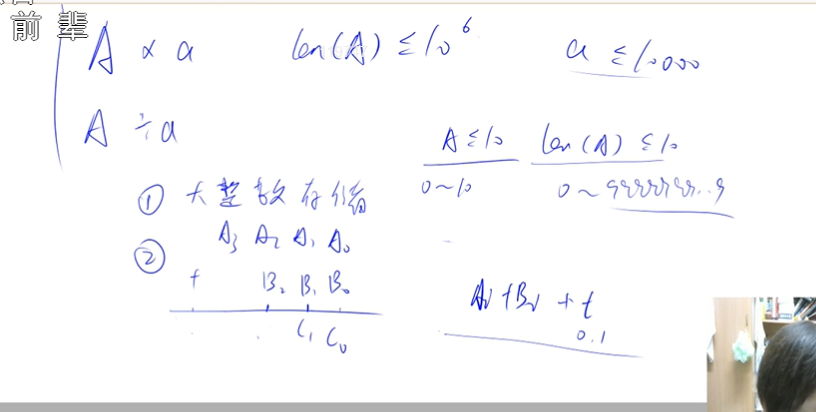 前 辈
A × a len(A) ≤ 10⁶ a ≤ 10000
A ÷ a
A ≤ 10 len(A) ≤ 10
0~10 0~99999999..9
① 大整数存储
② A₃ A₂ A₁ A₀
+ B₂ B₁ B₀
C₁ C₀
+ t
0.1